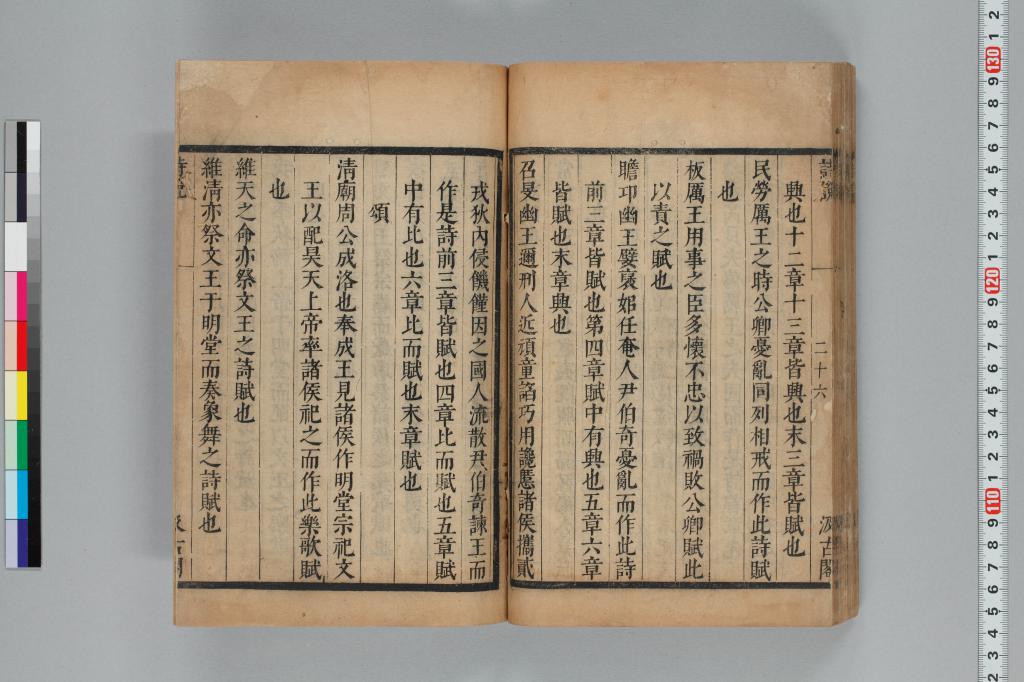 詩說 二十六 汲古閣
興也十二章十三章皆興也末三章皆賦也
民勞厲王之時公卿憂亂同列相戒而作此詩賦
也
板厲王用事之臣多懷不忠以致禍敗公卿賦此
以責之賦也
瞻卬幽王嬖褒姒任奄人尹伯奇憂亂而作此詩
前三章皆賦也第四章賦中有興也五章六章
皆賦也末章興也
召旻幽王邇刑人近頑童諂巧用讒慝諸侯攜貳
戎狄內侵饑饉因之國人流散尹伯奇諫王而
作是詩前三章皆賦也四章比而賦也五章賦
中有比也六章比而賦也末章賦也
頌
清廟周公成洛也奉成王見諸侯作明堂宗祀文
王以配昊天上帝率諸侯祀之而作此樂歌賦
也
維天之命亦祭文王之詩賦也
維清亦祭文王于明堂而奏象舞之詩賦也
2 1 130 9 8 7 6 5 4 3 2 1 120 9 8 7 6 5 4 3 2 1 110 9 8 7 6 5 4 3 2